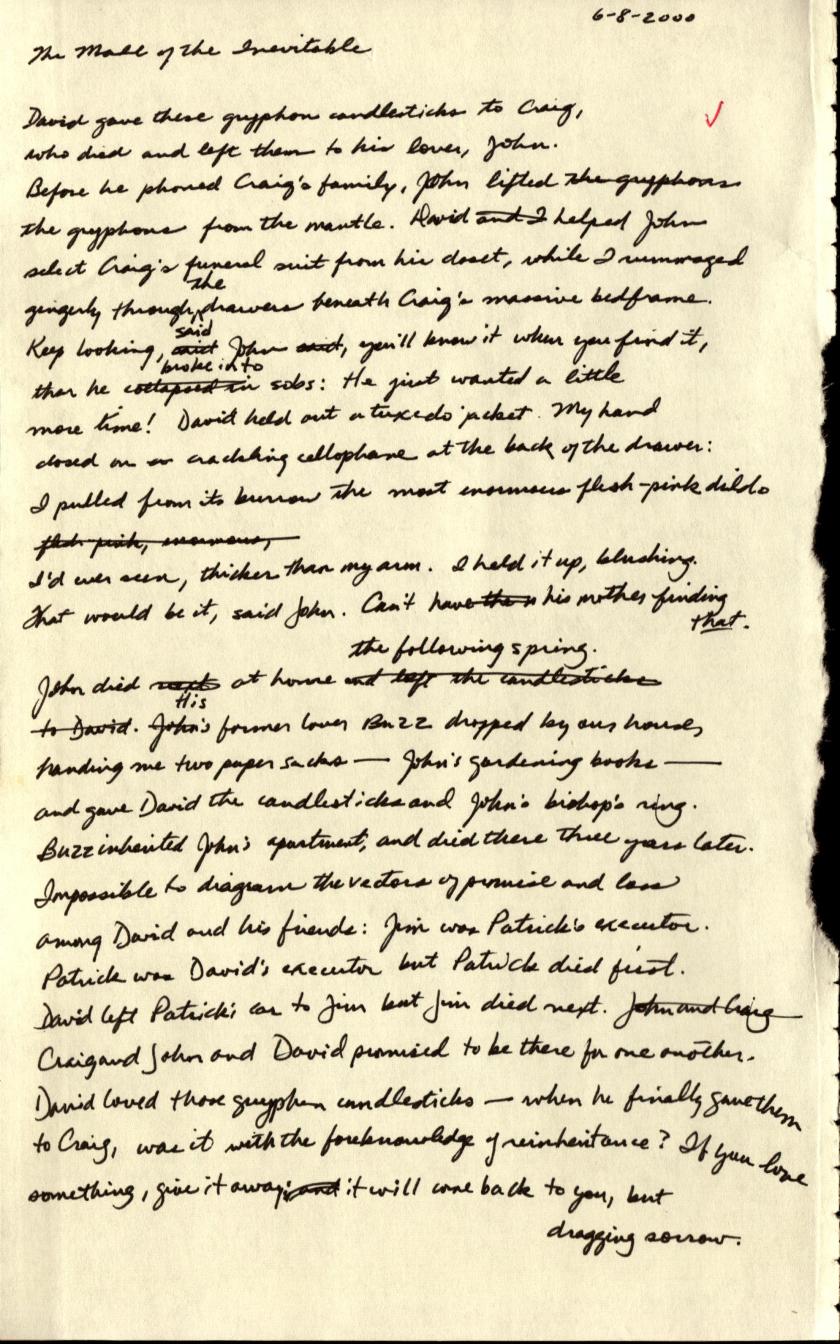 6-8-2000
The Mall of the Inevitable
David gave these gryphon candlesticks to Craig,
who died and left them to his lover, John.
Before he phoned Craig's family, John lifted the gryphons
the gryphons from the mantle. David and I helped John
select Craig's funeral suit from his closet, while I rummaged
the
gingerly through drawers beneath Craig's massive bedframe.
said
Keep looking, said John said, you'll know it when you find it,
broke into
then he collapsed in sobs: He just wanted a little
more time! David held out a tuxedo jacket. My hand
closed on crackling cellophane at the back of the drawer:
I pulled from its burrow the most enormous flesh-pink dildo
flesh pink, enormous,
I'd ever seen, thicker than my arm. I held it up, blushing.
That would be it, said John. Can't have his mother finding
that.
the following spring.
John died next at home and left the candlesticks
His
to David. John's former lover Buzz dropped by our house,
handing me two paper sacks — John's gardening books —
and gave David the candlesticks and John's bishop's ring.
Buzz inherited John's apartment, and died there three years later.
Impossible to diagram the vectors of promise and loss
among David and his friends: Jim was Patrick's executor.
Patrick was David's executor but Patrick died first.
David left Patrick's car to Jim but Jim died next. John and Craig
Craig and John and David promised to be there for one another.
David loved those gryphon candlesticks — when he finally gave them
to Craig, was it with the foreknowledge of reinheritance? If you love
something, give it away; and it will come back to you, but
dragging sorrow.